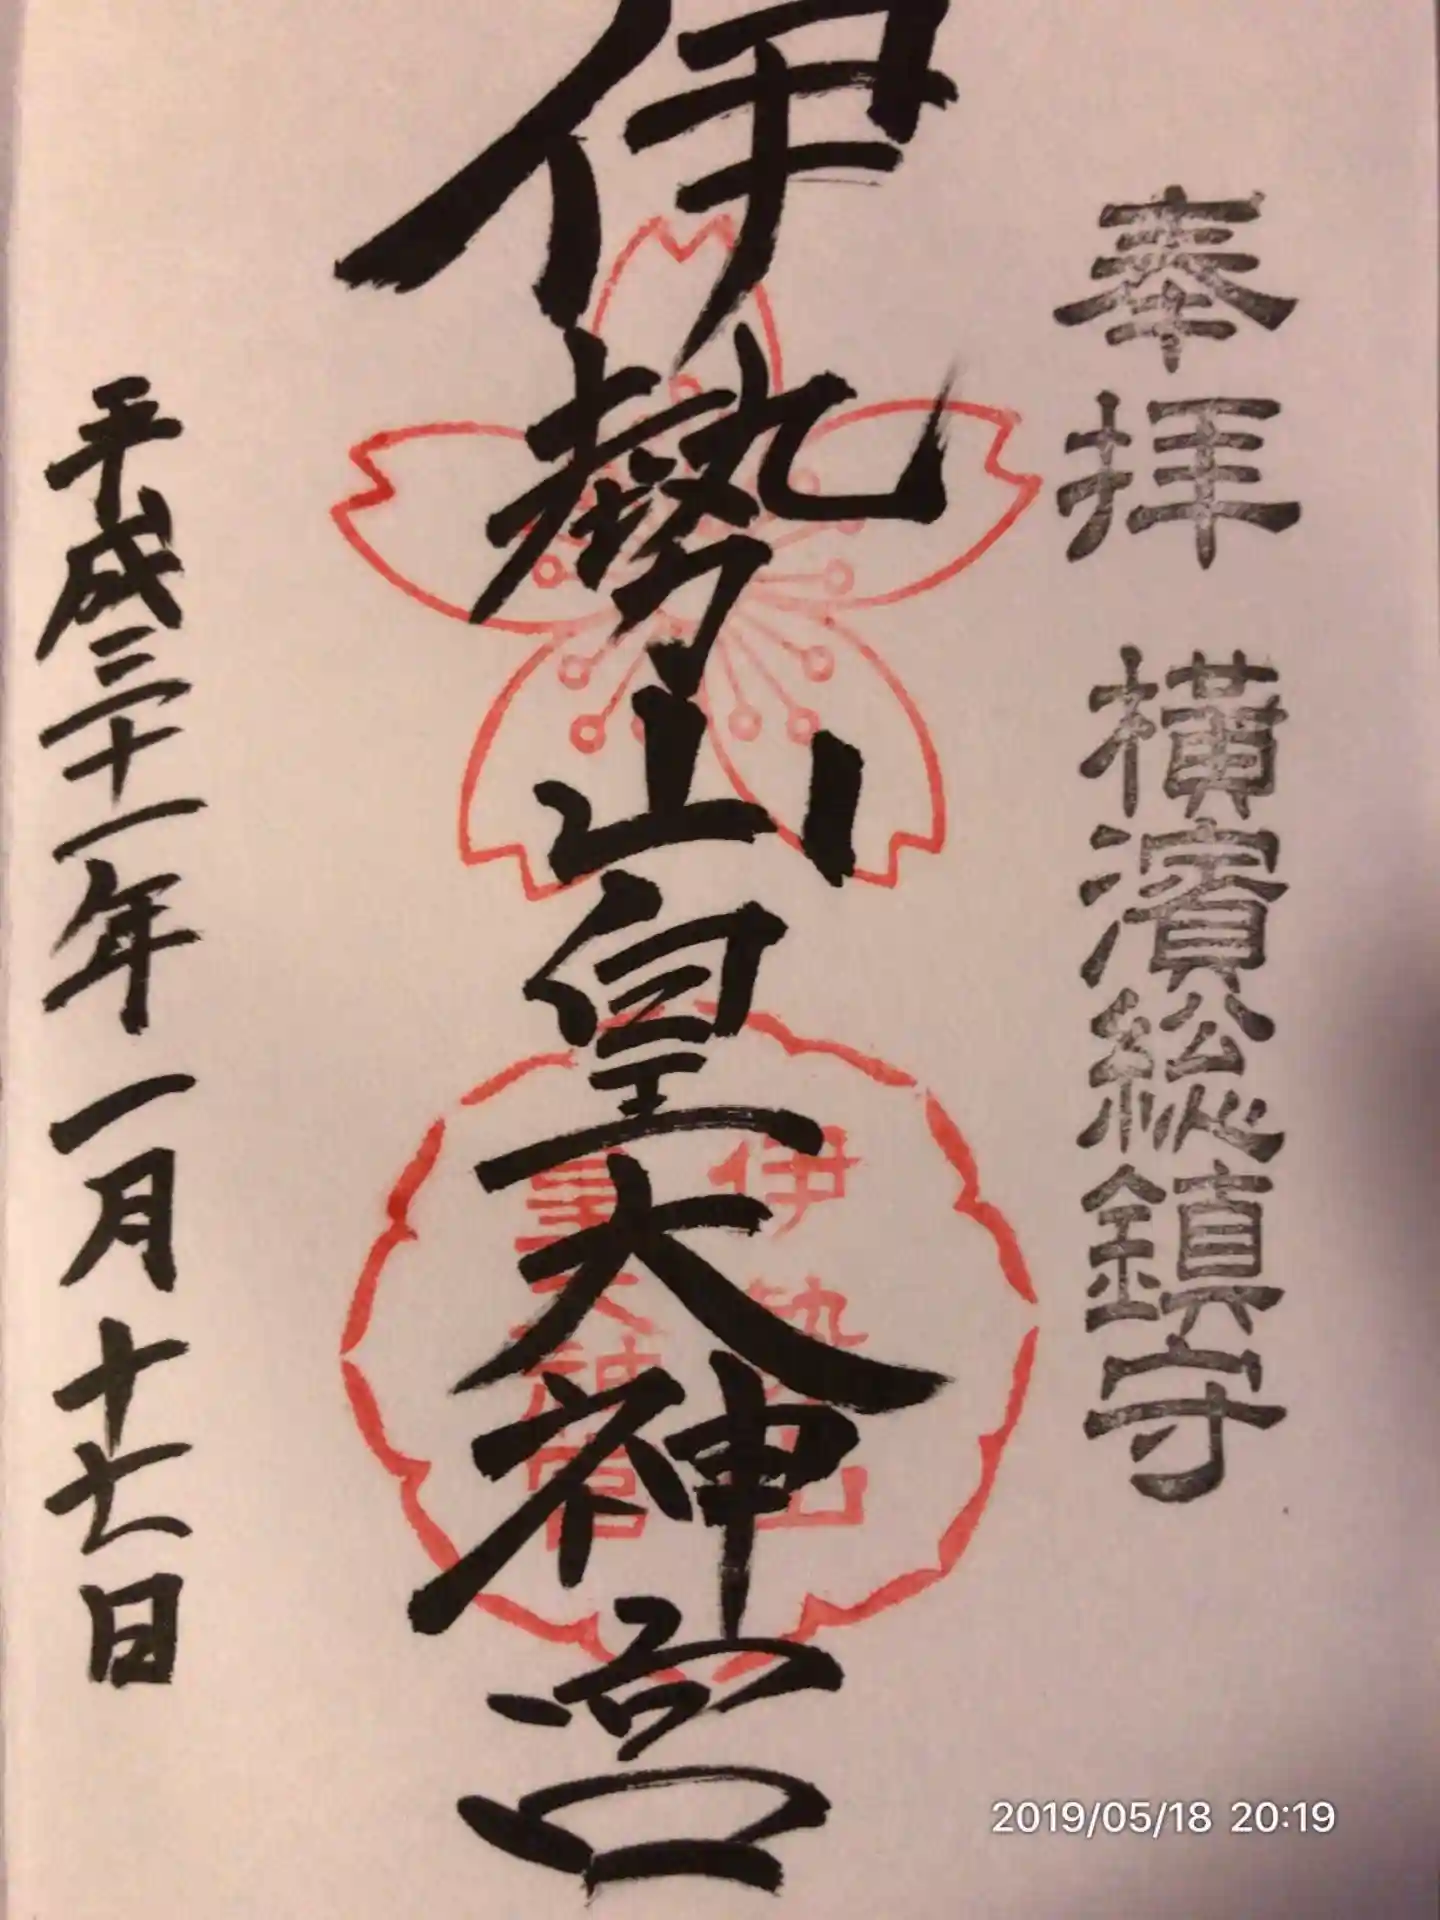 奉拝 横濱総鎮守
伊勢山皇大神宮
伊勢山
皇大神宮
平成三十一年一月十七日
2019/05/18 20:19